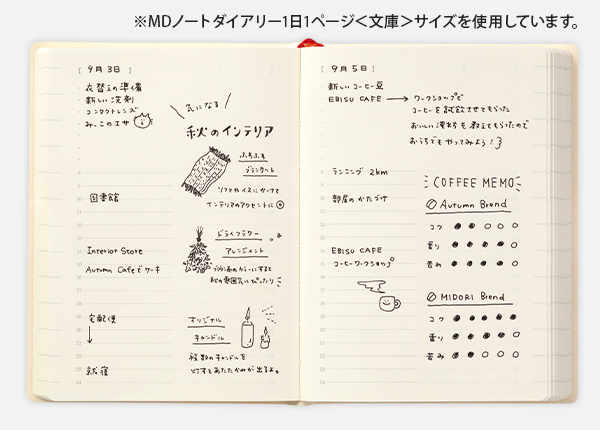 ※MDノートダイアリー1日1ページ<文庫>サイズを使用しています。
[ 9月3日 ]
衣替えの準備
新しい洗剤
コンタクトレンズ
みっこのエサ
気になる
秋のインテリア
ふちふさ
ブランケット
ソファやイスにかけて
インテリアのアクセントに
図書館
ドライフラワー
アレンジメント
ブラウン系のカラーにすると
秋の雰囲気にぴったり
Interior Store
Autumn Cafeでケーキ
宅配便
オリジナル
キャンドル
複数のキャンドルを
灯すとあたたかみが出るよ。
就寝
[ 9月5日 ]
新しいコーヒー豆
EBISU CAFE → ワークショップで
コーヒーを試飲させてもらった
おいしい淹れ方も教えてもらったので
おうちでもやってみよう!
ランニング 2km
部屋のかたづけ
EBISU CAFE
コーヒーワークショップ
COFFEE MEMO
Autumn Brend
コク ●●○○○
香り ●●●●○
苦み ●●●●○
MIDORI Brend
コク ●●●●●
香り ●●●●○
苦み ●●○○○